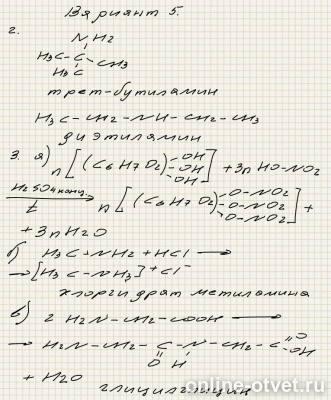 Вариант 5.
2.
NH2
H3C-C-CH3
H3C
трет-бутиламин
H3C-CH2-NH-CH2-CH3
диэтиламин
3. а) n[(C6H7O2)-OH -OH -OH] + 3nHO-NO2
H2SO4 конц. t → n[(C6H7O2)-O-NO2 -O-NO2 -O-NO2] +
+ 3nH2O
б) H3C-NH2 + HCl →
→ [H3C-NH3]+Cl-
хлоргидрат метиламина
в) 2 H2N-CH2-COOH →
→ H2N-CH2-C-N-CH2-C=O-OH
O H
+ H2O
глицилглицин
online-otvet.ru